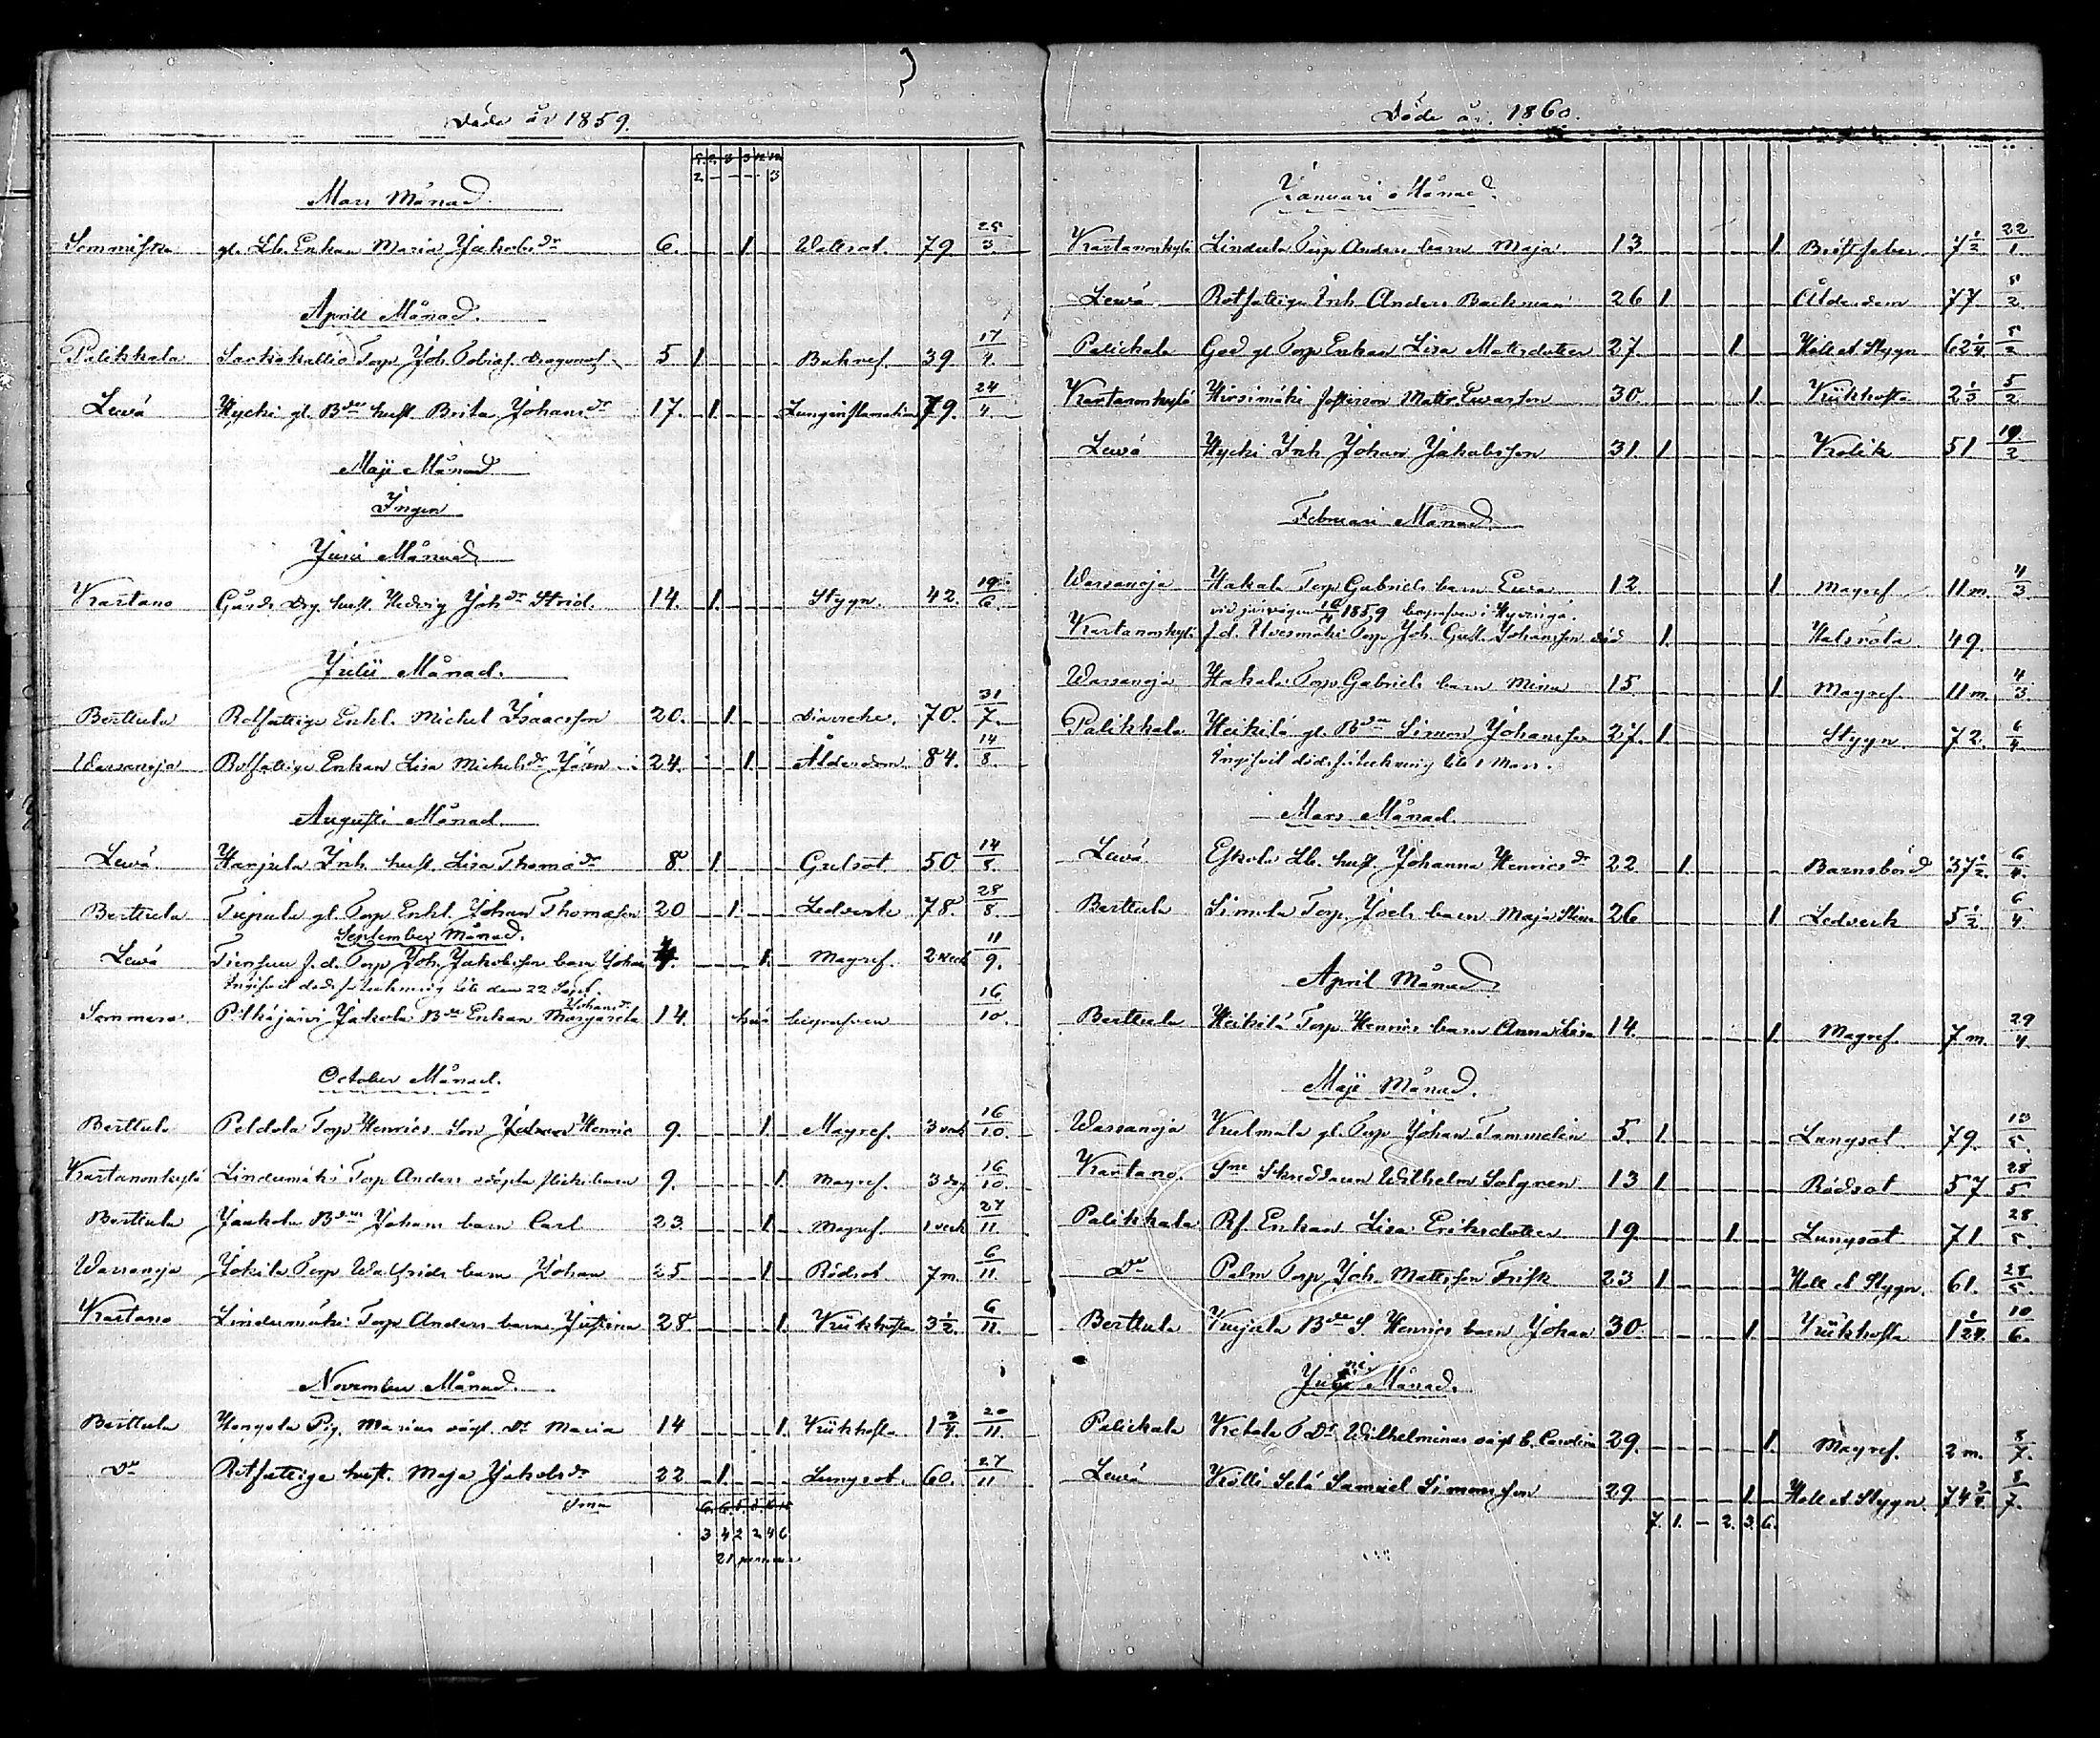 Döde år 1859.
Mars Månad.
gl. Lb. Enkan Maria Jakobsdr 6. 1. Wattsot. 79. 25/3.
Aprill Månad.
Palikkala Torp. Joh. 5 1. 39. 17/4.
Lewä Hycki gl. Bdn hust. Brita Johansdr 17. 1. Lunginflamation 79. 24/4.
Maji Månad
Ingen
Juni Månad
Kartano Gårds Drg. hust. Hedvig Johdr Strid. 14. 1. Stygn. 42. 19/6.
Julii Månad.
Berttula Rotfattige Enkl. Michel Isaacsson 20. 1. 70. 31/7.
Warsanoja Rotfattige Enkan Lisa Michelsdr 24. 1. Ålderdom. 84. 14/8.
Augusti Månad.
Lewä. Harjula Inh. hust. Lisa Thomædr 8. 1. Gulsot. 50. 14/8.
Berttula gl. Torp Enkl. Johan Thomasson 20 1. Ledverk 78. 28/8.
September Månad.
Lewä f.d. Torp Joh. Jakobsson barn Johan 1. Magref. 2 veck 11/9.
Ingifvit dödsförteckning till den 22 Sept.
Johansdr
Jakola Bde Enkan Margareta 14. här begrafven 16/10.
October Månad.
Berttula Peldola Torp Henrics Son Henric 9. 1. Magref. 3 veck 16/10.
Kartanonkylä Lindumäki Torp Anders odöpta flickebarn 9. 1. Magref. 3 dg. 16/10.
Berttula Jaakola Bdns Johans barn Carl 23. 1. Magref. 1 veck 27/11.
Warsanoja Jokila Torp Walfrids barn Johan 25 1. Rödsot 7 m. 6/11.
Kartano Lindumäki Torp Anders barn Justina 28. 1. Kikhosta 3 1/2. 6/11.
November Månad.
Berttula Hongola Pig. Marias oägt. Dr Maria 14 1. Kikhosta 1 3/4. 20/11.
Do Rotfattige hust. Maja Jakobsdr 22 1. Lungsot. 60. 27/11
Sma
3 4 2 2 4 6
21 personer
Döde år. 1860.
Januari Månad.
Kartanonkylä Lindula Torp Anders barn Maja 13. 1. Bröstfeber. 7 1/2 22/1.
Lewä Rotfattige Inh. Anders Backman 26 1. Ålderdom 77 5/2
Palickala gl Torp Enkan Lisa Mattsdotter 27. 1 Håll et Stygn 62 1/4 5/2
Kartanonkylä Hirsimäki Matts Ewasson 30. 1. Kikhosta 2 1/3 5/2
Lewä Hycki Inh Johan Jakobsson 31. 1 Kolik 51 19/2
Februari Månad.
Warsanoja Hakala Torp Gabriels barn Ewa 12. 1 Magref 11 m. 4/3.
1859 begrafven i Hyvingä.
Kartanonkylä f.d. Torp Joh. Gust. Johansson död 1. Halsröta 49.
Warsanoja Hakala Torp Gabriels barn Mina 15 1 Magref 11 m. 4/3
Palikkala Heikilä gl. Bden Simon Johansson 27. 1. Stygn 72. 6/4
Ingifvit dödsförteckning till 1 Mars.
Mars Månad.
Lewä Eskola Lb. hust Johanna Henricsdr 22 1. Barnsbörd 37 1/2. 6/4.
Berttula Simola Torp Joels barn Maja Stina 26 1 Ledverk 5 1/2 6/4.
April Månad
Berttula Heikilä Torp Henrics barn Anna Lisa 14. 1. Magref 7 m. 29/4.
Maji Månad.
Warsanoja Kulmala gl. Torp Johan Tammelin 5. 1. Lungsot 79. 13/5.
Kartano. Sne Skräddaren Wilhelm Solgren 13 1. Rödsot 57 28/5.
Palikkala Rf. Enkan Lisa Eriksdotter 19 1. Lungsot 71. 28/5.
Do Palm Torp Joh. Mattsson Frisk 23 1. Håll et Stygn. 61. 28/5.
Berttula Bden S. Henrics barn Johan 30. 1. Kikhosta 1 1/24. 10/6.
Juni Månad.
Palickala Ketola P. Dr Wilhelminas oägt b. Carolina 29. 1. Magref. 2 m. 8/7.
Lewä Kölli Samuel Simonsson 29. 1. Håll et Stygn 74 3/4. 8/7.
7. 1. – 2. 3. 6.